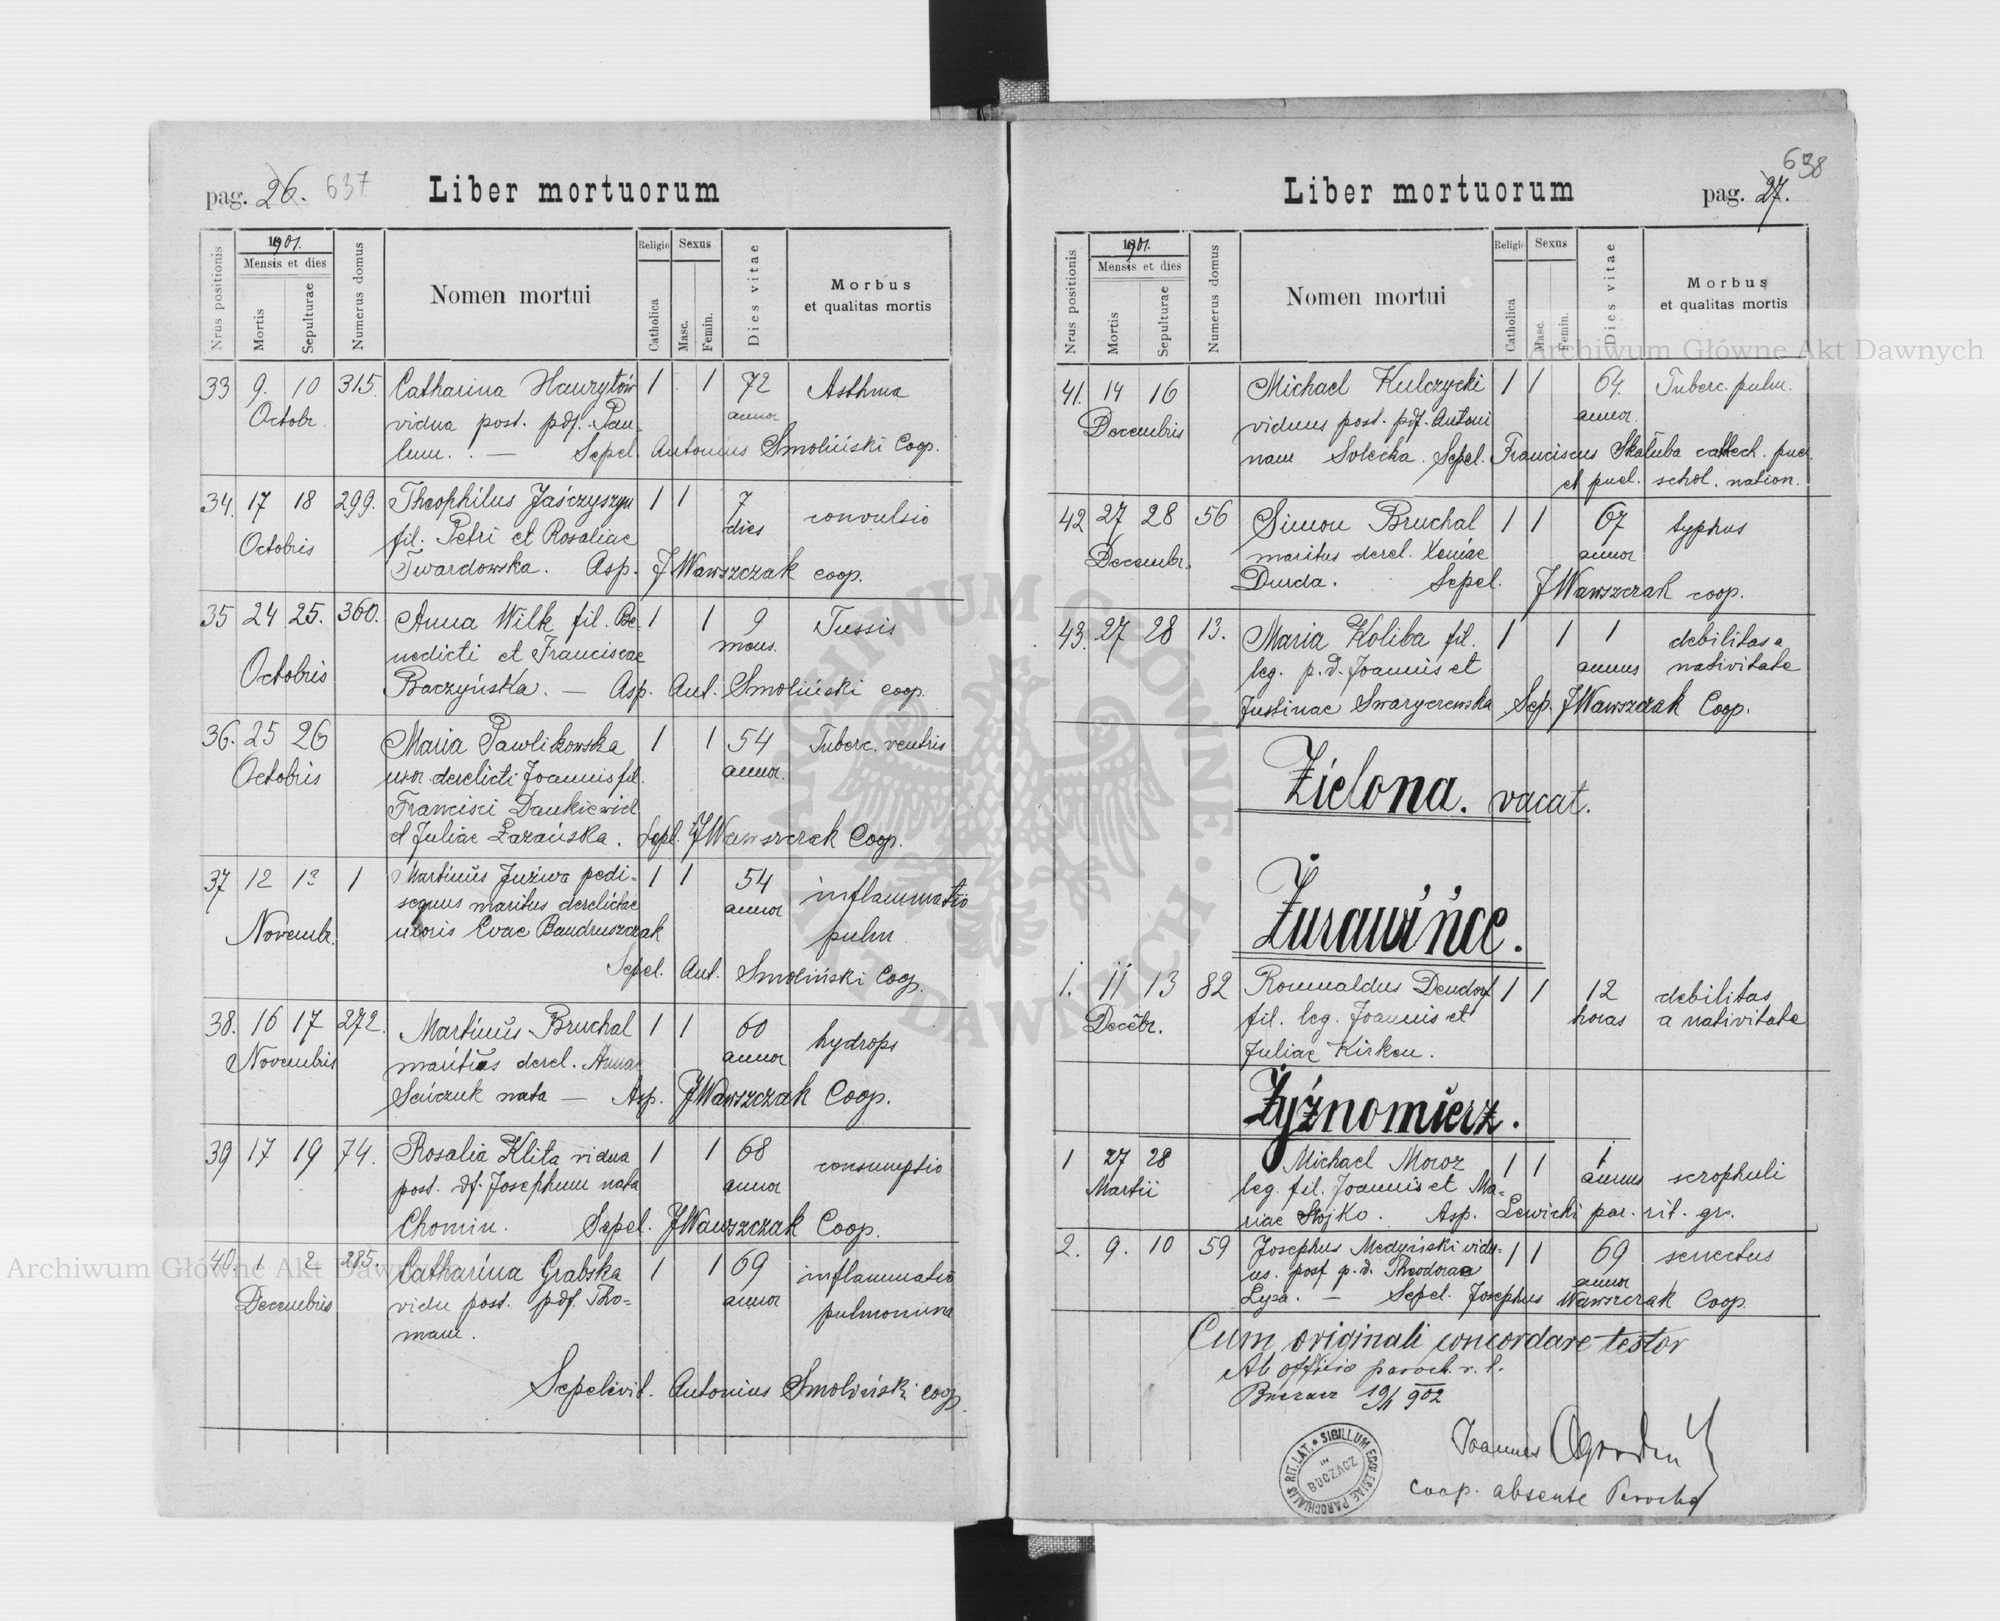 pag. 26. 637
Liber mortuorum
Nrus positionis
1901.
Mensis et dies
Mortis
Sepulturae
Numerus domus
Nomen mortui
Religio
Catholica
Sexus
Masc.
Femin.
Dies vitae
Morbus
et qualitas mortis
33 9. 10 315. Catharina 1 1 72 Asthma
Octobr. vidua post. pdf. Pau- annor
lum. . — Sepel. Antonius Smoliński Coop.
34. 17 18 299. Theophilus Jaśczyszyn 1 1 7 convulsio
Octobris fil. Petri et Rosaliae dies
Twardowska. Asp. J Wawszczak coop.
35 24 25. 360. Anna Wilk fil. Be- 1 1 9 Tussis
nedicti et Franciscae mens.
Octobris Baczyńska. — Asp. Ant. Smoliński coop.
36. 25 26 Maria Pawlikowska 1 1 54 Tuberc. ventris
Octobris uxor derelicti Joannis fil. annor.
Francisci
et Juliae Łazańska. Sepl. J Wawszczak Coop.
37 12 13 1 Martinus Juźwa pedi- 1 1 54 inflammatio
sequus maritus derelictae annor
Novembr. uxoris Evae Bandruszczak pulm
Sepel. Ant. Smoliński Coop.
38. 16 17 272. Martinus Bruchal 1 1 60 hydrops
Novembris maritus derel. Annae annor
nata — Asp. J Wawszczak Coop.
39 17 19 74. Rosalia Klita vidua 1 1 68 consumptio
post. df. Josephum nata annor
Chomin. Sepel. J Wawszczak Coop.
40. 1 2 285. Catharina Grabska 1 1 69 inflammatio
Decembris vidu post. pdf. Tho= annor pulmonum
mam.
Sepelivit. Antonius Smoliński coop.
638
Liber mortuorum
pag. 27.
Nrus positionis
1901.
Mensis et dies
Mortis
Sepulturae
Numerus domus
Nomen mortui
Religio
Catholica
Sexus
Masc.
Femin.
Dies vitae
Morbus
et qualitas mortis
41. 14 16 Michael Kulczycki 1 1 64. Tuberc. pulm.
Decembris viduus post. pdf. Antoni annor.
nam Solecka. Sepel. Franciscus Skałuba catech. puer.
et puel. schol. nation.
42 27 28 56 Simon Bruchal 1 1 67 typhus
Decembr. maritus derel. Xeniae annor
Durda. Sepel. J Wawszczak coop.
43. 27 28 13. Maria Koliba fil. 1 1 1 debilitas a
leg. p. d. Joannis et annus nativitate
Justinae Swaryczewska Sep. J Wawszczak Coop.
Zielona. vacat.
Żurawińce.
1. 11 13 82 Romualdus Dendorf 1 1 12 debilitas
Decēbr. fil. leg. Joannis et horas a nativitate
Juliae Kirkou.
Żyźnomierz.
1 27 28 Michael Moroz 1 1 1 scrophuli
Martii leg. fil. Joannis et Ma- annus
riae Stojko. Asp. Lewicki par. rit. gr.
2. 9. 10 59 Josephus Medyński vidu- 1 1 69 senectus
us. post p. d. Theodorae annor
Lysa. — Sepel. Josephus Wawszczak Coop.
Cum originali concordare testor
Ab officio paroch. r. l.
Buczacz 19/1 902
Joannes
coop. absente Parocho
SIGILLUM ECCLESIAE PAROCHIALIS RIT. LAT.
IN
BUCZACZ
Archiwum Główne Akt Dawnych
Archiwum Główne Akt Dawnych
ARCHIWUM GŁÓWNE AKT DAWNYCH